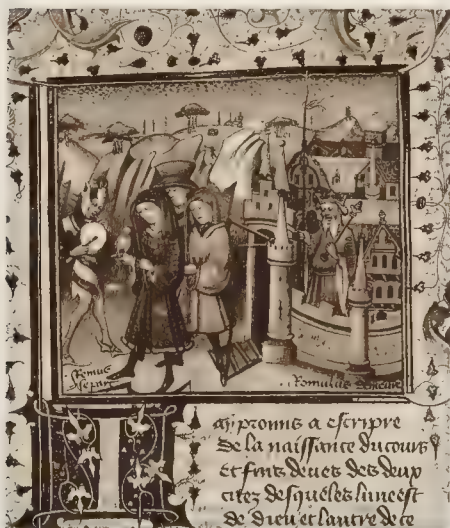 Remus
separt
Romulus demeure
I
ay promis a escripre
de la naissance du cours
et fins deues des deux
citez desqueles lune est
de dieu et lautre de ce